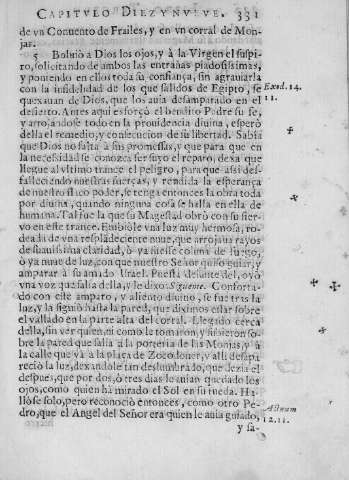 CAPITVLO DIEZ Y NVEVE. 331
de vn Conuento de Frailes, y en vn corral de Mon-
jas.
5 Boluiò a Dios los ojos, y à la Virgen el suspi-
ro, solicitando de ambos las entrañas piadosissimas,
y poniendo en ellos toda su confiança, sin agrauarla
con la infidelidad de los que salidos de Egipto, se
quexauan de Dios, que los auia desamparado en el
desierto. Antes aqui esforçò el bendito Padre su fe,
y arrojandose todo en la prouidencia diuina, esperò
della el remedio, y consecucion de su libertad. Sabia
que Dios no falta à sus promessas, y que para que en
la necessidad se conozca ser suyo el reparo, dexa que
llegue al vltimo trance el peligro, para que assi des-
falleciendo nuestras fuerças, y rendida la esperança
de nuestro flaco poder, se tenga entonces la obra toda
por diuina, quando ninguna cosa se halla en ella de
humana. Tal fue la que su Magestad obrò con su sier-
vo en este trance. Embiòle vna luz muy hermosa, ro-
deada de vna resplãdeciente nuue, que arrojaua rayos
de suauissima claridad, ò ya fuesse coluna de fuego,
ò ya nuue de luz, con que nuestro Señor quiso guiar, y
amparar à su amado Israel. Puesta delante del, oyò
vna voz que salia della, y le dixo: Sigueme. Conforta-
do con este amparo, y aliento diuino, se fue tras la
luz, y la siguiò hasta la pared, que diximos estar sobre
el vallado en la parte alta del corral. Llegado cerca
della, sin ver quien, ni como le tomaron, y pusieron so-
bre la pared que salia a la porteria de las Monjas, y à
la calle que và à la plaça de Zocodouer, y alli desapa-
reciò la luz, dexandole tan deslumbrado, que dezia el
despues, que por dos, ò tres dias le auian quedado los
ojos, como quien ha mirado el Sol en su rueda. Ha-
llòse solo, pero reconociò entonces, como otro Pe-
dro, que el Angel del Señor era quien le auia guiado,
y sa-
Exod. 14.
11.
Actuum
12. 11.